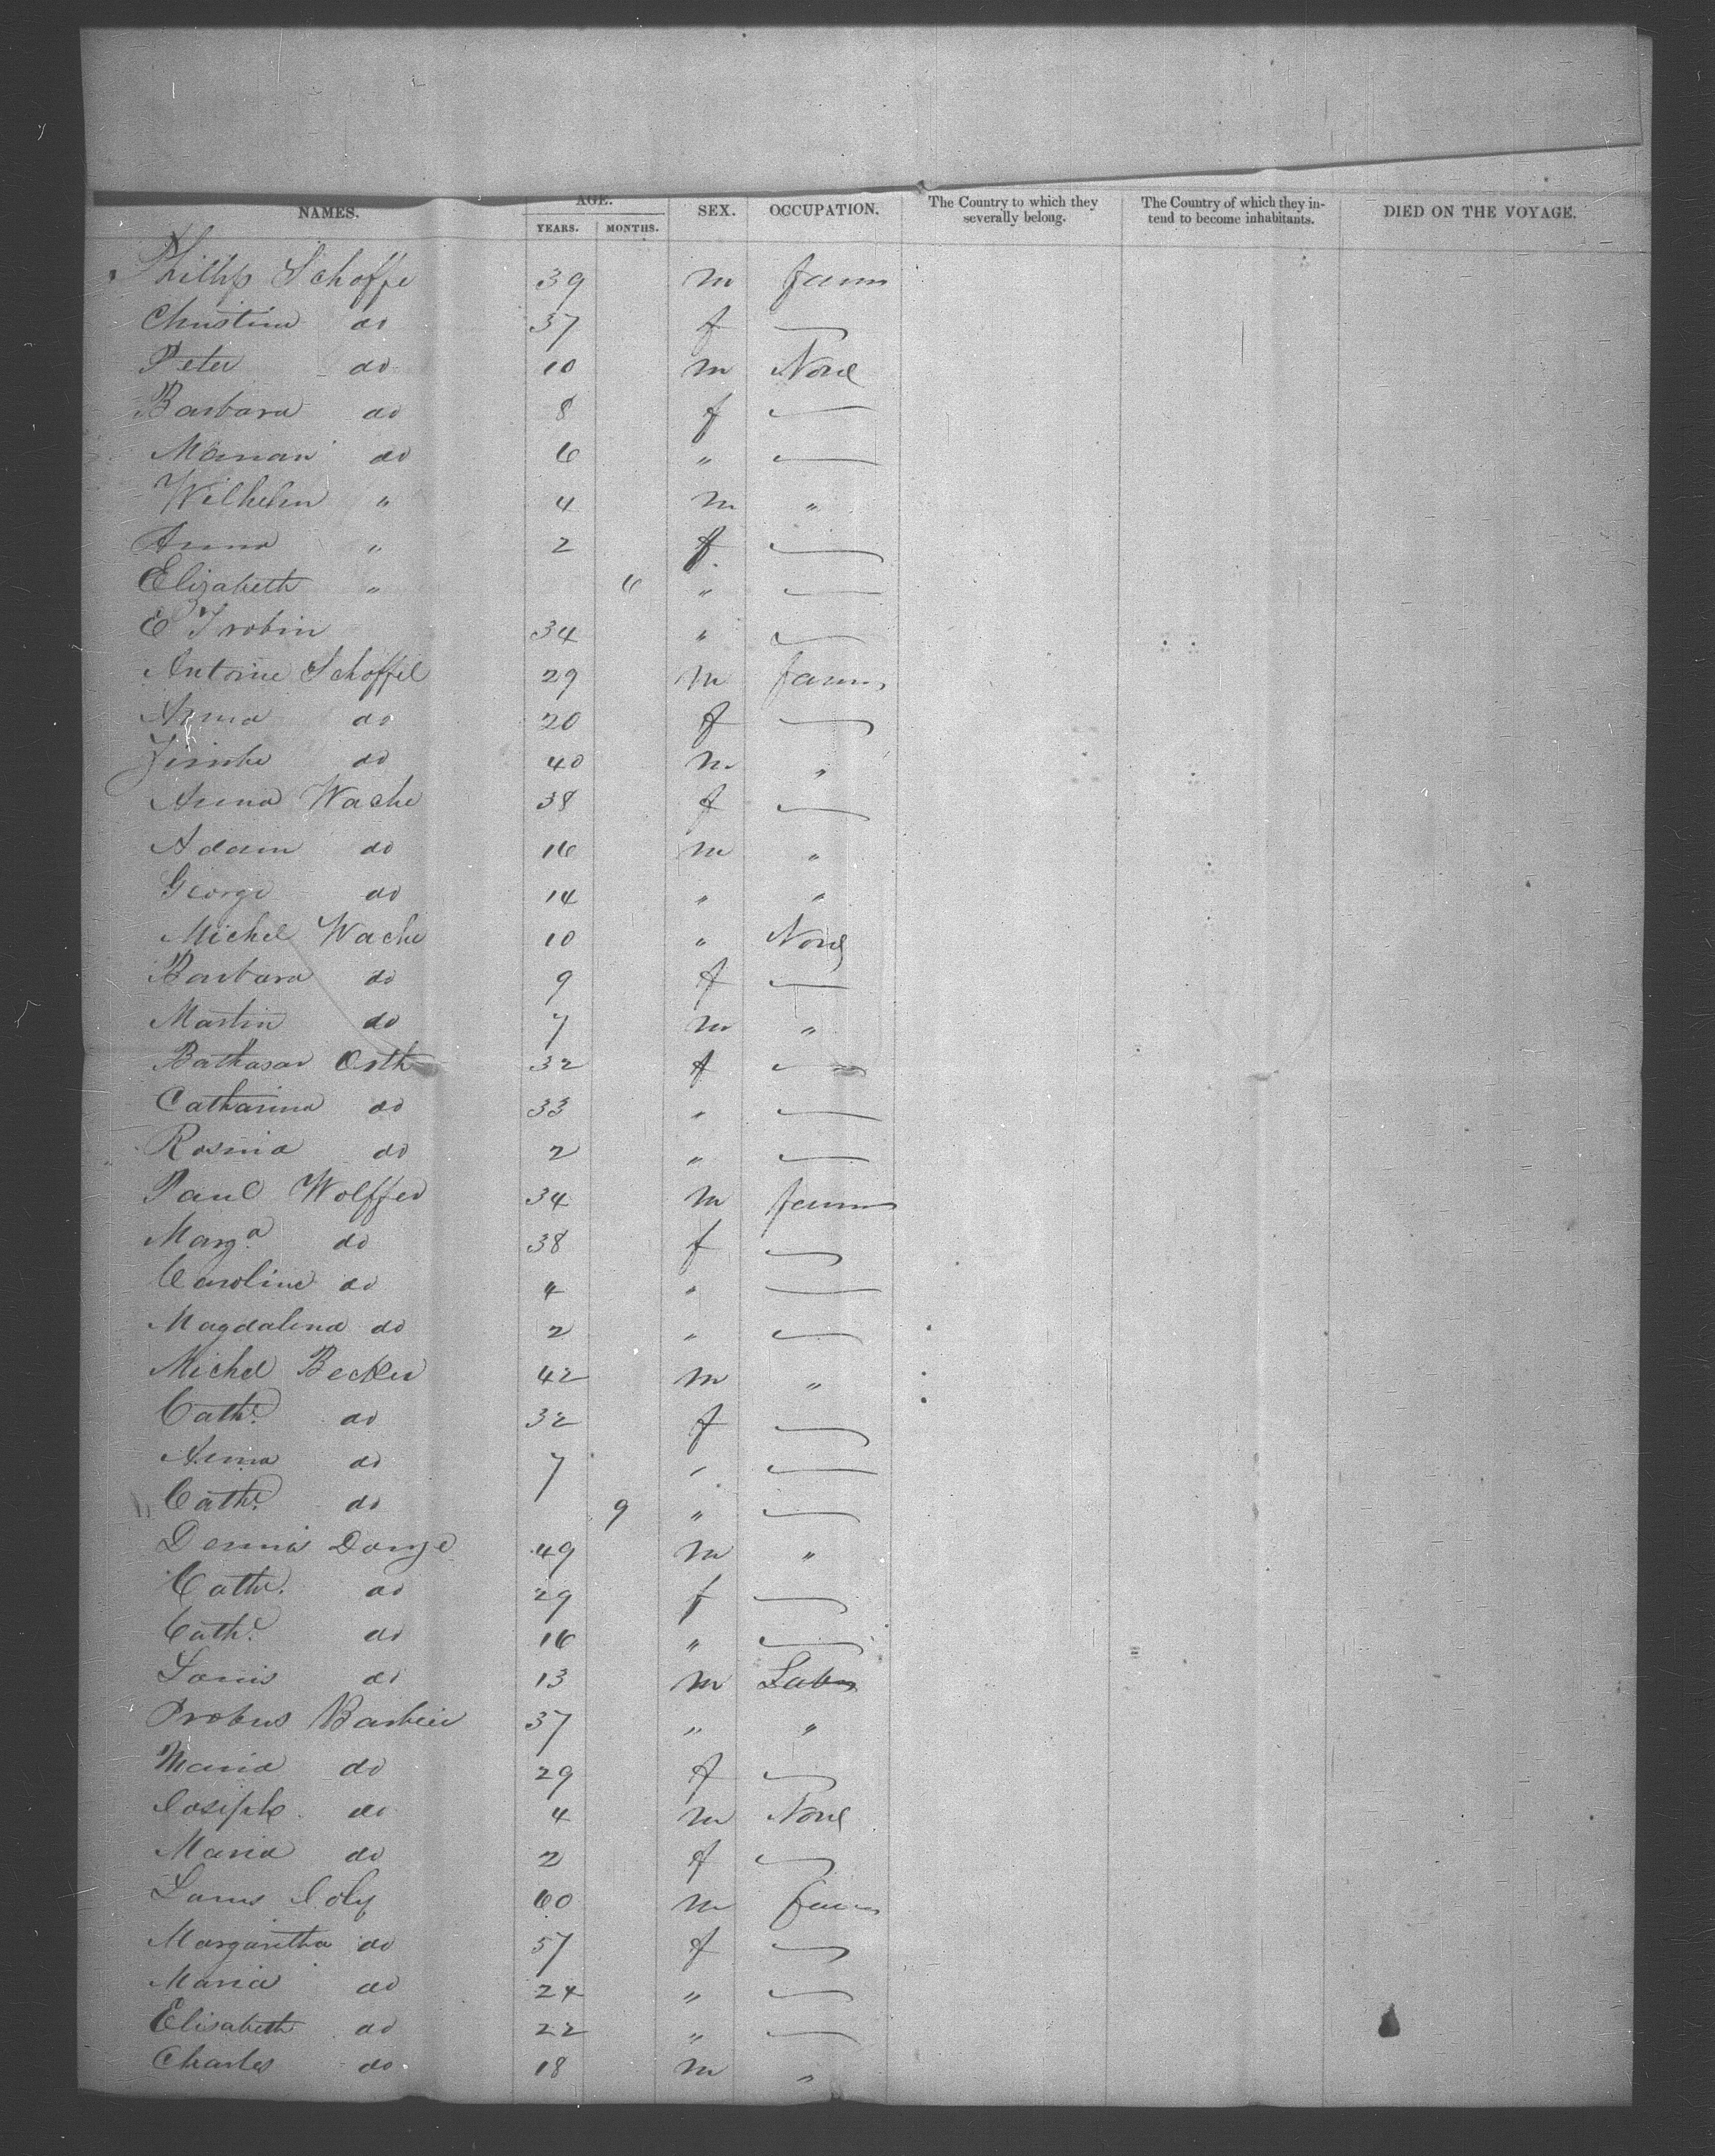 NAMES. AGE. SEX. OCCUPATION. The Country to which they severally belong. The Country of which they intend to become inhabitants. DIED ON THE VOYAGE.
YEARS. MONTHS.
Phillip Schoffe 39 m farm
Christina do 37 f —
Peter do 10 m None
Barbara do 8 f —
Marian do 6 " —
Wilhelm " 4 m "
Anna " 2 f —
Elizabeth " 6 " —
E Trobin 34 " —
Antoine Schoffel 29 m farm
Anna do 20 f —
do 40 m "
Anna Wache 38 f —
Adam do 16 m "
George do 14 " "
Michel Wache 10 " None
Barbara do 9 f —
Martin do 7 m "
Bathasar Orth 32 f —
Catharina do 33 " —
Rosina do 2 " —
Paul Wolffer 34 m farm
Marg.a do 38 f —
Caroline do 4 " —
Magdalena do 2 " —
Michel Becker 42 m "
Cathe. do 32 f —
Anna do 7 " —
Cathe. do 9 " —
Dennis 49 m "
Cathe. do 29 f —
Cathe. do 16 " —
Louis do 13 m Labr
Probus Barbier 37 " "
Maria do 29 f —
Joseph do 4 m None
Maria do 2 f —
Louis Joly 60 m farm
Margaretha do 57 f —
Maria do 24 " —
Elisabeth do 22 " —
Charles do 18 m "